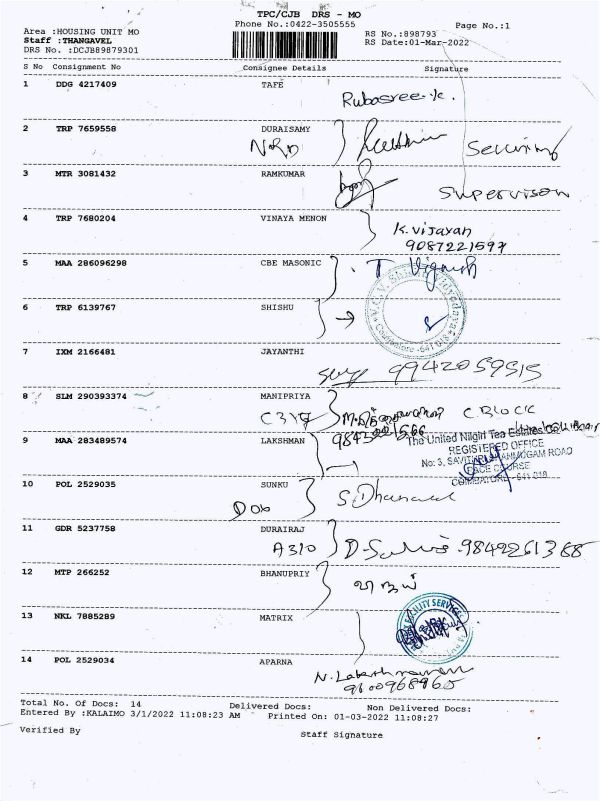 TPC/CJB DRS - MO
Phone No.:0422-3505555
Page No.:1
Area :HOUSING UNIT MO
Staff :THANGAVEL
DRS No. :DCJB89879301
RS No.:898793
RS Date:01-Mar-2022
S No Consignment No Consignee Details Signature
1 DDG 4217409 TAFE
Rubasree.K.
2 TRP 7659558 DURAISAMY
Security
3 MTR 3081432 RAMKUMAR
Supervison
4 TRP 7680204 VINAYA MENON
K.Vijayan
9087221597
5 MAA 286096298 CBE MASONIC
T Vignesh
6 TRP 6139767 SHISHU
Coimbatore-641 018
7 IXM 2166481 JAYANTHI
9942059515
8 SLM 290393374 MANIPRIYA
C317 C.BLOCK
9 MAA 283489574 LAKSHMAN
The United Nilgiri Tea Estates Co
REGISTERED OFFICE
No: 3, SAVITHRI SHANMUGAM ROAD
RACE COURSE
COIMBATORE - 641 018
10 POL 2529035 SUNKU
S.Dhanavel
11 GDR 5237758 DURAIRAJ
A310 9842261388
12 MTP 266252 BHANUPRIY
13 NKL 7885289 MATRIX
FACILITY SERVICES
14 POL 2529034 APARNA
N.Lakshmanan
9600968965
Total No. Of Docs: 14 Delivered Docs: Non Delivered Docs:
Entered By :KALAIMO 3/1/2022 11:08:23 AM Printed On: 01-03-2022 11:08:27
Verified By Staff Signature